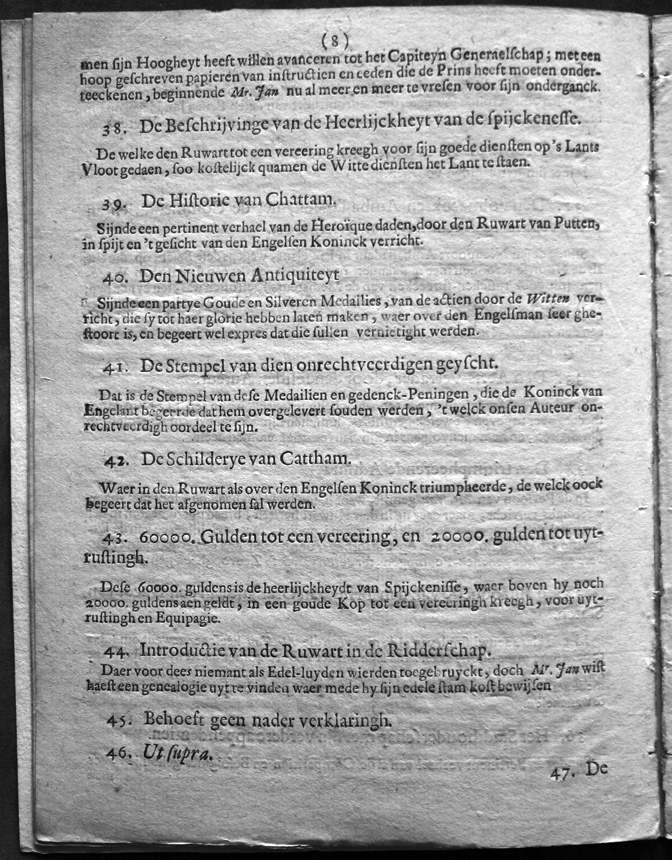 (8)
men ſijn Hoogheyt heeft willen avanceren tot het Capiteyn Generaelſchap; met een
hoop geſchreven papieren van inſtructien en eeden die de Prins heeft moeten onder-
teeckenen, beginnende Mr. Jan nu al meer en meer te vreſen voor ſijn onderganck.
38. De Beſchrijvinge van de Heerlijckheyt van de ſpijckeneſſe.
De welke den Ruwart tot een vereering kreegh voor ſijn goede dienſten op's Lants
Vloot gedaen, ſoo koſtelijck quamen de Witte dienſten het Lant te ſtaen.
39. De Hiſtorie van Chattam.
Sijnde een pertinent verhael van de Heroïque daden, door den Ruwart van Putten,
in ſpijt en 't geſicht van den Engelſen Koninck verricht.
40. Den Nieuwen Antiquiteyt
Sijnde een partye Goude en Silveren Medallies, van de actien door de Witten ver-
richt, die ſy tot haer glorie hebben laten maken, waer over den Engelſman ſeer ghe-
ſtoort is, en begeert wel expres dat die ſullen vernietight werden.
41. De Stempel van dien onrechtveerdigen geyſcht.
Dat is de Stempel van deſe Medailien en gedenck-Peningen, die de Koninck van
Engelant begeerde dat hem overgelevert ſouden werden, 't welck onſen Auteur on-
rechtveerdigh oordeel te ſijn.
42. De Schilderye van Cattham.
Waer in den Ruwart als over den Engelſen Koninck triumpheerde, de welck oock
begeert dat het afgenomen ſal werden.
43. 60000. Gulden tot een vereering, en 20000. gulden tot uyt-
ruſtingh.
Deſe 60000. guldens is de heerlijckheydt van Spijckeniſſe, waer boven hy noch
20000. guldens aen geldt, in een goude Kop tot een vereeringh kreegh, voor uyt-
ruſtingh en Equipagie.
44. Introductie van de Ruwart in de Ridderſchap.
Daer voor dees niemant als Edel-luyden wierden toegebruyckt, doch Mr. Jan wiſt
haeſt een genealogie uyt te vinden waer mede hy ſijn edele ſtam koſt bewijſen
45. Behoeft geen nader verklaringh.
46. Ut ſupra.
47. De